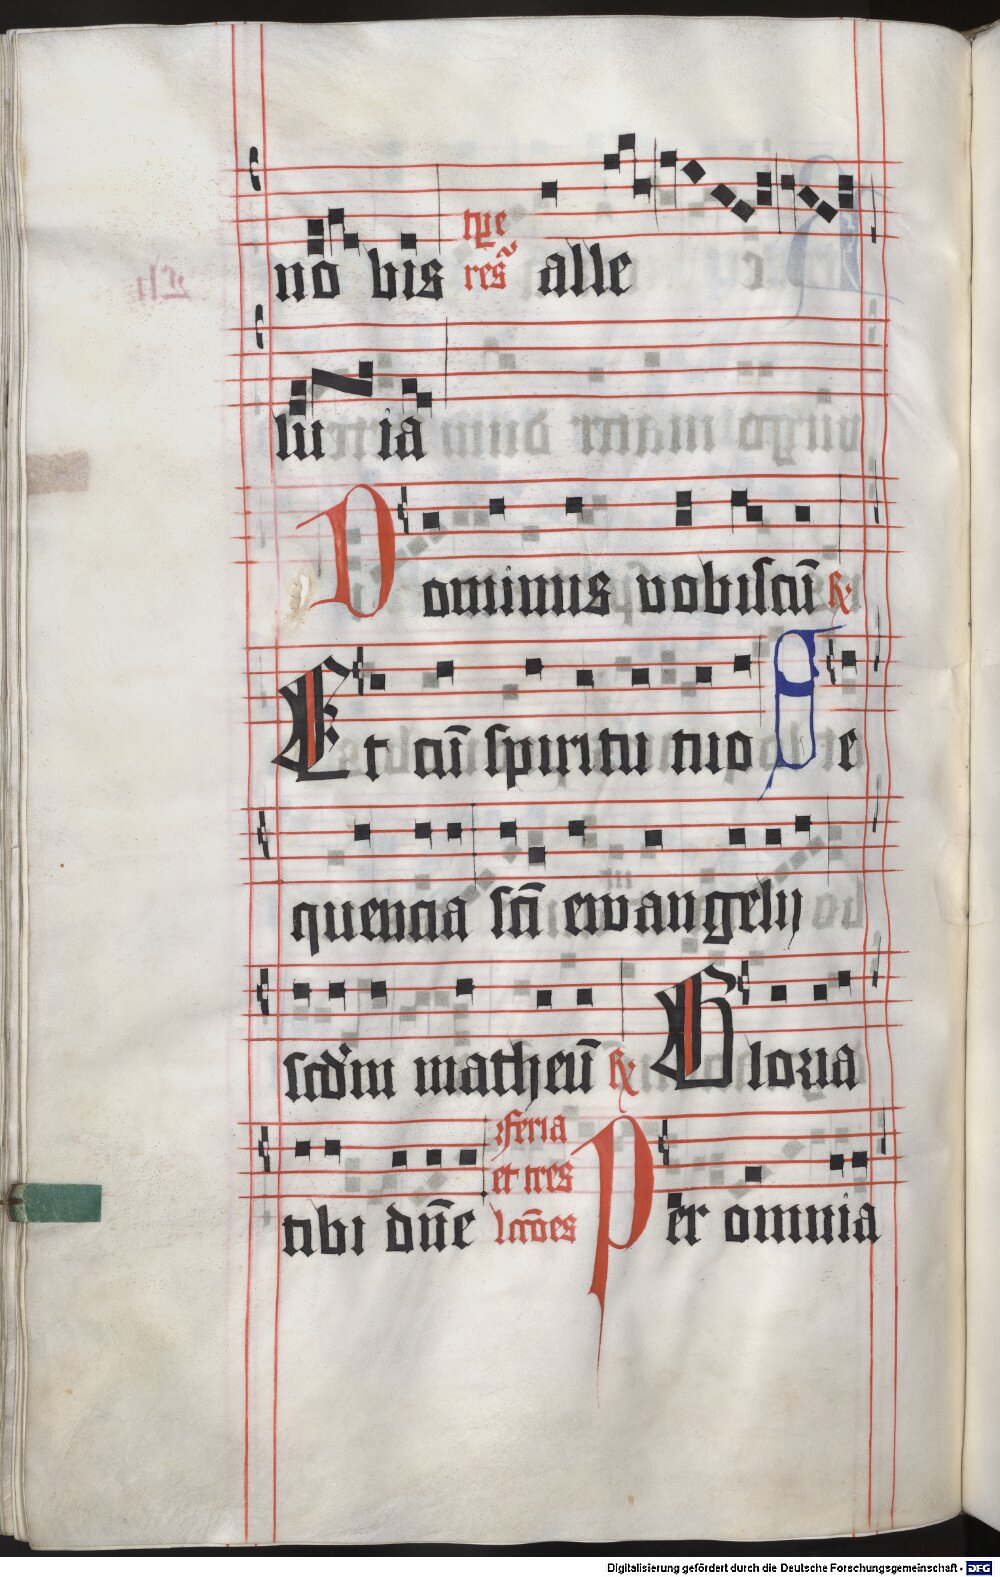 no bis tpe resr̃ alle
lu ia
Dominus vobiscū ℟.
Et cū spiritu tuo Se
quencia sc̄i ewangelij
scd'm matheū ℟. Gloria
tibi dn̄e feria et tres lcc̄oes Per omnia
Digitalisierung gefördert durch die Deutsche Forschungsgemeinschaft - DFG